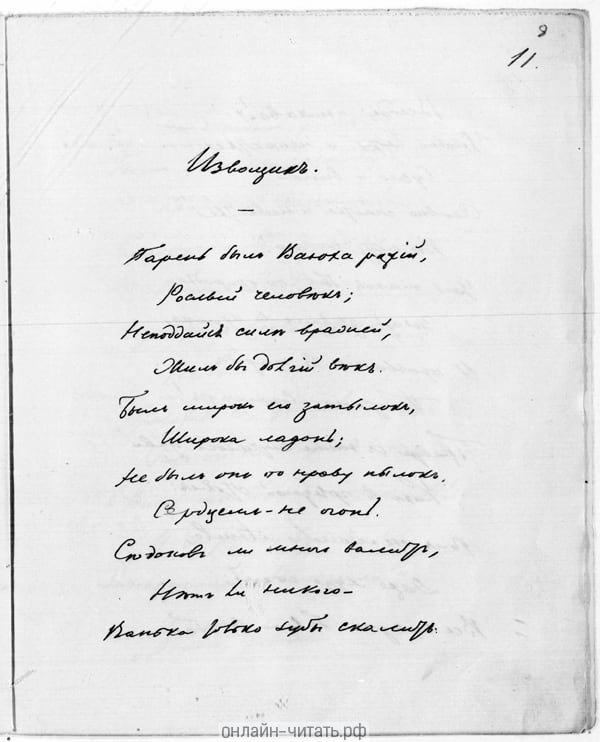 9
11.
Извощикъ.
Парень былъ Ванюха ражій,
Рослый человѣкъ;
Неподдайся силѣ вражией,
Жилъ бы долгій вѣкъ.
Былъ широкъ его затылокъ,
Широка ладонь;
Не былъ онъ по нраву пылокъ,
Сердцемъ-не огонь.
Сѣдоковъ ли много валитъ,
Нѣтъ ли никого-
Ванька только зубы скалитъ
онлайн-читать.рф